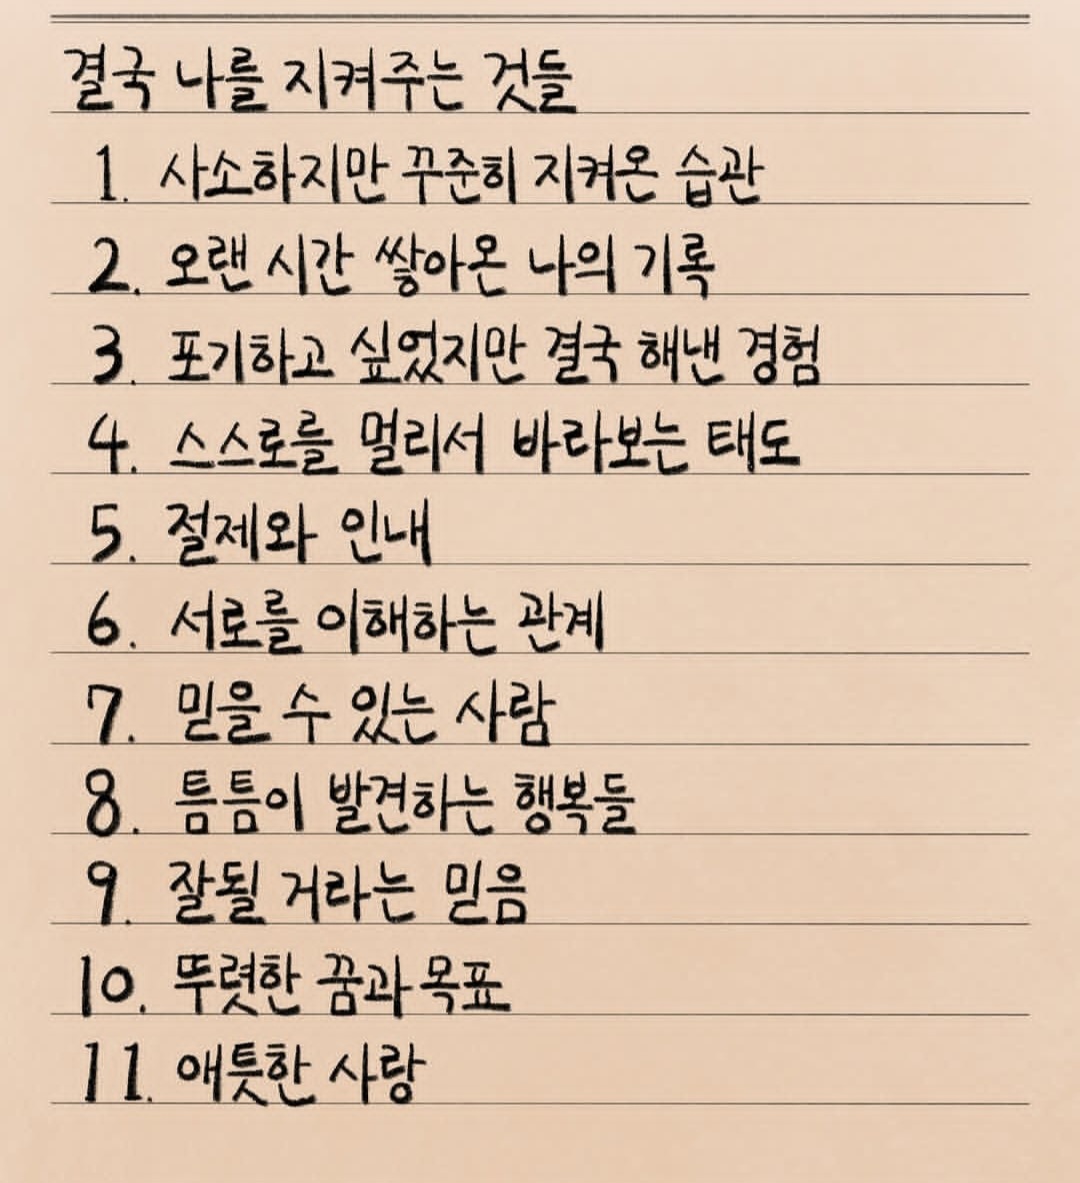 결국 나를 지켜주는 것들
1. 사소하지만 꾸준히 지켜온 습관
2. 오랜 시간 쌓아온 나의 기록
3. 포기하고 싶었지만 결국 해낸 경험
4. 스스로를 멀리서 바라보는 태도
5. 절제와 인내
6. 서로를 이해하는 관계
7. 믿을 수 있는 사람
8. 틈틈이 발견하는 행복들
9. 잘될 거라는 믿음
10. 뚜렷한 꿈과 목표
11. 애틋한 사랑